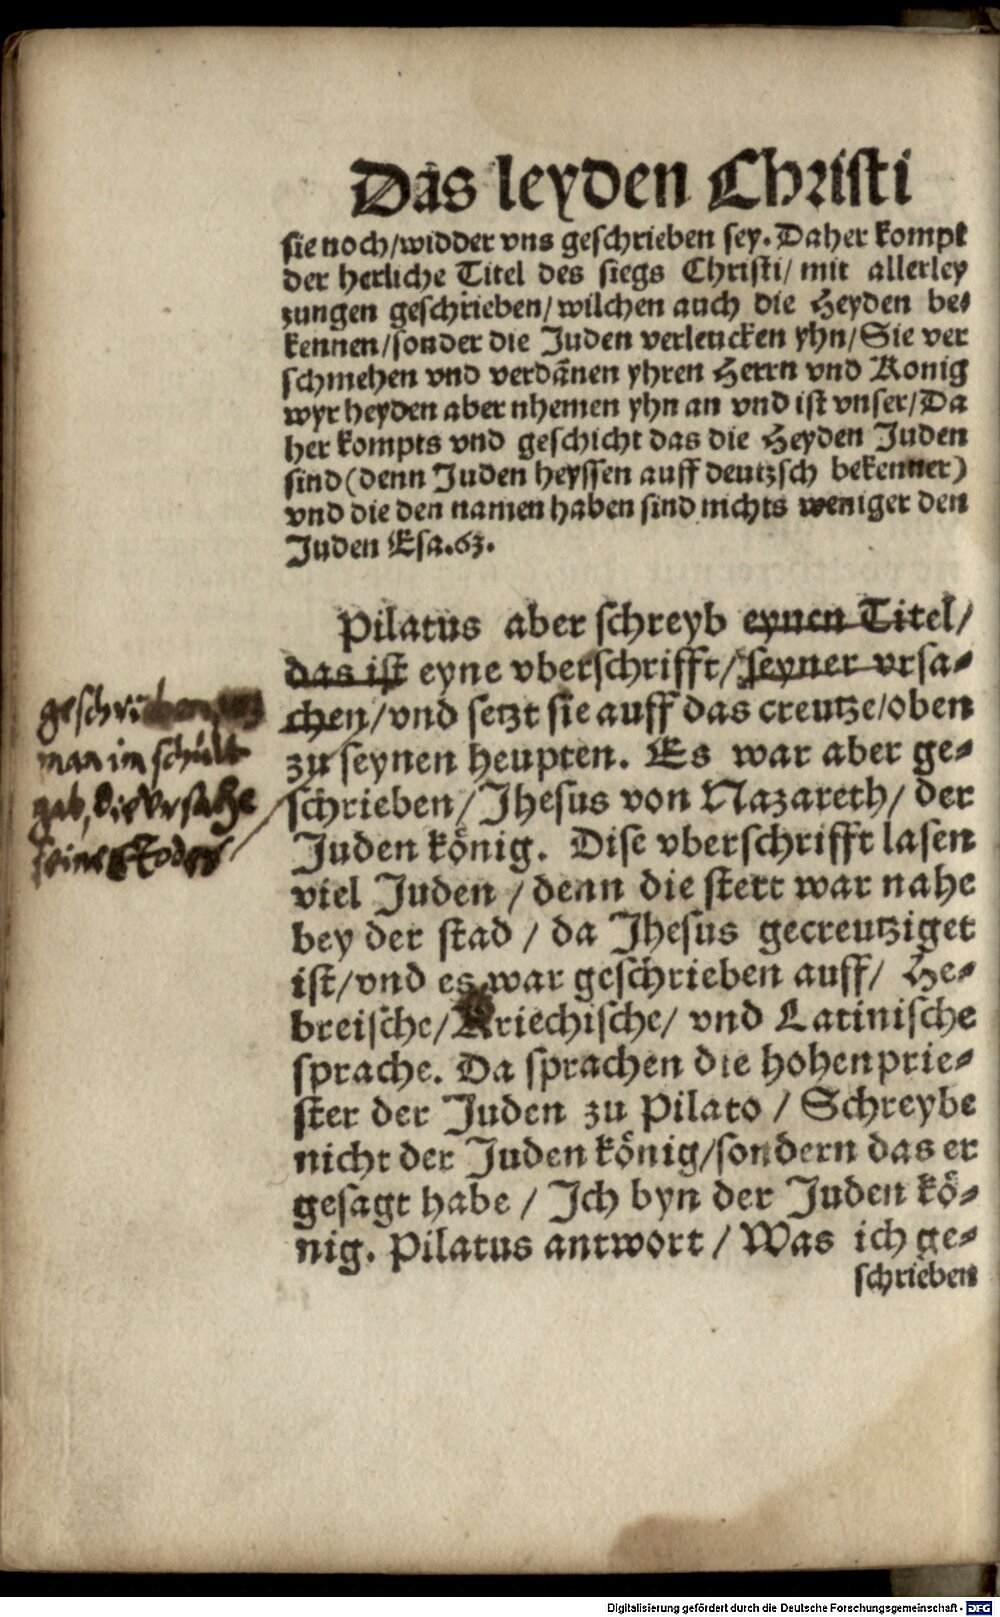 Das leyden Christi
sie noch/widder vns geschrieben sey. Daher kompt
der herliche Titel des siegs Christi/ mit allerley
zungen geschrieben/wilchen auch die Heyden be-
kennen/sonder die Juden verleucken yhn/Sie ver
schmehen vnd verdãnen yhren Herrn vnd Konig
wyr heyden aber nhemen yhn an vnd ist vnser/Da
her kompts vnd geschicht das die Heyden Juden
sind(denn Juden heyssen auff deutzsch bekenner)
vnd die den namen haben sind nichts weniger den
Juden Esa.63.
Pilatus aber schreyb eynen Titel/
das ist eyne vberschrifft/seyner vrsa-
chen/vnd setzt sie auff das creutze/oben
zu seynen heupten. Es war aber ge-
schrieben/Jhesus von Nazareth/ der
Juden könig. Dise vberschrifft lasen
viel Juden / denn die stett war nahe
bey der stad / da Jhesus gecreutziget
ist/vnd es war geschrieben auff/ He-
breische/Kriechische/ vnd Latinische
sprache. Da sprachen die hohenprie-
ster der Juden zu Pilato / Schreybe
nicht der Juden könig/sondern das er
gesagt habe / Ich byn der Juden kö-
nig. Pilatus antwort / Was ich ge-
schrieben
man im schult
gab, die Vrsache
seines Todes
Digitalisierung gefördert durch die Deutsche Forschungsgemeinschaft - DFG